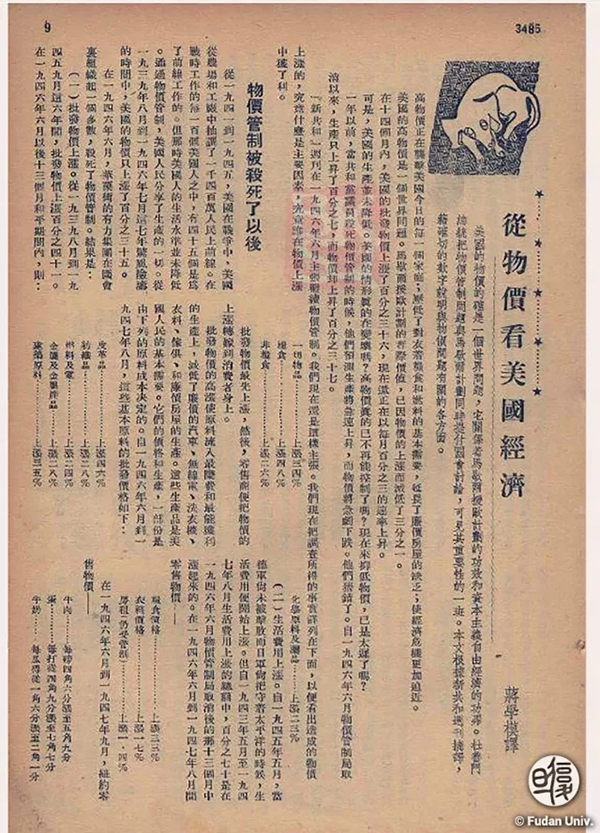 9
3485
從物價看美國經濟
蔣學模譯
美國的物價的確是一個世界問題,它關係着馬歇爾援歐計劃的功效和資本主義自由經濟的功罪。杜魯門
總統把物價管制問題與馬歇爾計劃同時提付國會討論,可見其重要性的一斑。本文根據新共和週刊摘譯,
確切的數字說明與物價問題有關的各方面。
高物價正在襲擊美國今日的每一個家庭;壓低了對衣着糧食和燃料的基本需要,延長了廉價房屋的缺乏;使經濟危機更加迫近。
美國的高物價是一個世界問題。馬歇爾援歐計劃的實際價值,已因物價的上漲而減低了三分之一。
在十四個月內,美國的批發物價上漲了百分之三十六,現在還正在以每月百分之三的速率上昇。
可是,美國的生產並未降低。美國的情形真的在變壞嗎?高物價真的已不再能控制了嗎?現在來抑低物價,已是太遲了嗎?
一年以前,當共和黨議員殺死物價管制的時候,他們預測生產將急速上昇,而物價將急劇下跌。他們猜錯了。自一九四六年六月物價管制局取
消以來,生產只上昇了百分之七,而物價却上昇了百分之三十七。
「新共和」週刊在一九四六年六月主張繼續物價管制。我們現在還是這樣主張。我們現在把調查所得的事實詳列在下面,以便看出造成的物價
上漲的,究竟什麼是主要因素,究竟誰在物價上漲
中獲了利。
物價管制被殺死了以後
從一九四一到一九四五,美國在戰爭中,美國
從農場和工廠中抽調了一千四百萬人民上前線。在
戰時工作的每一百個美國人之中,有四十五個是為
了前線工作的。但那時美國人的生活水準並未降低
。通過物價管制,美國人民分享了生產的一切。從
一九三九年八月到一九四六年七月這七年驚風險濤
的時間中,美國的物價只上漲了百分之三十五。
在一九四六年六月,華萊街的有力集團在國會
裏組織起一個多數,殺死了物價管制。結果是:
(一)批發物價上漲。從一九三九年八月到一九
四五九月這六年間,批發物價上漲百分之四十一。
在一九四六年六月以後十三個月和平期間內,則:
一切物品………上漲三四%
糧食…………上漲四八%
非糧食………上漲二六%
批發物價最先上漲,然後,零售商便把物價的
上漲轉嫁到消費者身上。
批發物價的高漲使原料流入最賺錢和最能獲利
的生產上,減低了廉價的汽車、無線電、洗衣機、
衣料、傢俱、和廉價房屋的生產。這些生產品是美
國人民的基本需要。它們的價格和生產,一部份是
由下列的原料成本決定的。自一九四六年六月到一
九四七年八月,這些基本原料的批發價格如下:
皮革品…………上漲四六%
紡織品…………上漲二八%
燃料及電………上漲二四%
金屬及金屬產品………上漲二八%
建築原料…………上漲三五%
化學原料及製品………上漲二三%
(二)生活費用上漲。自一九四五年五月,當
德軍尙未被擊敗而日軍尙把守着太平洋的時候,生
活費用便開始上漲。但自一九四三年五月至一九四
七年八月生活費用上漲的總額中,百分之七十是在
一九四六年六月物價管制局取消後的那十三個月中
漲起來的。在一九四六年六月到一九四七年八月間
零售物價——
糧食價格…………上漲三三%
衣料價格…………上漲一七%
房租(仍受管制)………上漲一·四%
在一九四六年六月到一九四七年九月,紐約零
售物價——
牛肉……每磅四角六分漲至五角九分
蛋………每打從四角九分漲至七角七分
牛奶……每瓜得從一角六分漲至二角一分
© Fudan Univ.